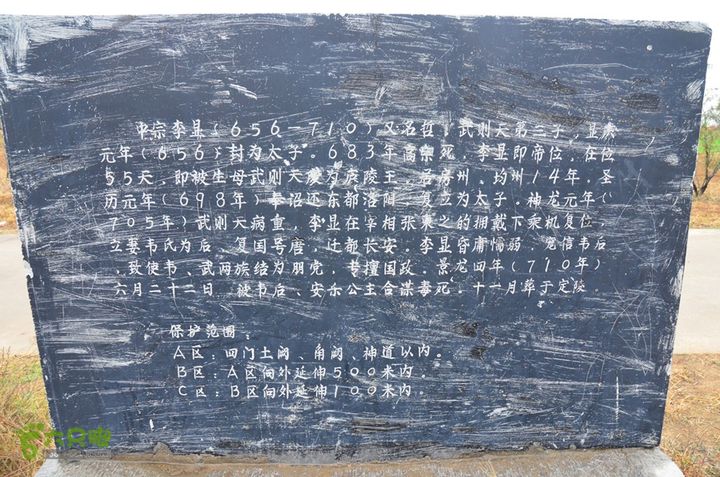 中宗李显（656－710）又名哲，武则天第三子，显庆
元年（656）封为太子。683年高宗死，李显即帝位，在位
55天，即被生母武则天废为庐陵王，居房州、均州14年。圣
历元年（698年）奉沼还东都洛阳，复立为太子。神龙元年（
705年）武则天病重，李显在宰相张柬之的拥戴下乘机复位，
立妻韦氏为后，复国号唐，迁都长安。李显昏庸懦弱，宠信韦后
，致使韦、武两族结为朋党，专擅国政。景龙四年（710年）
六月二十二日，被韦后、安乐公主合谋毒死。十一月葬于定陵
保护范围：
A区：四门土阙、角阙、神道以内。
B区：A区向外延伸500米内。
C区：B区向外延伸100米内。
六只脚